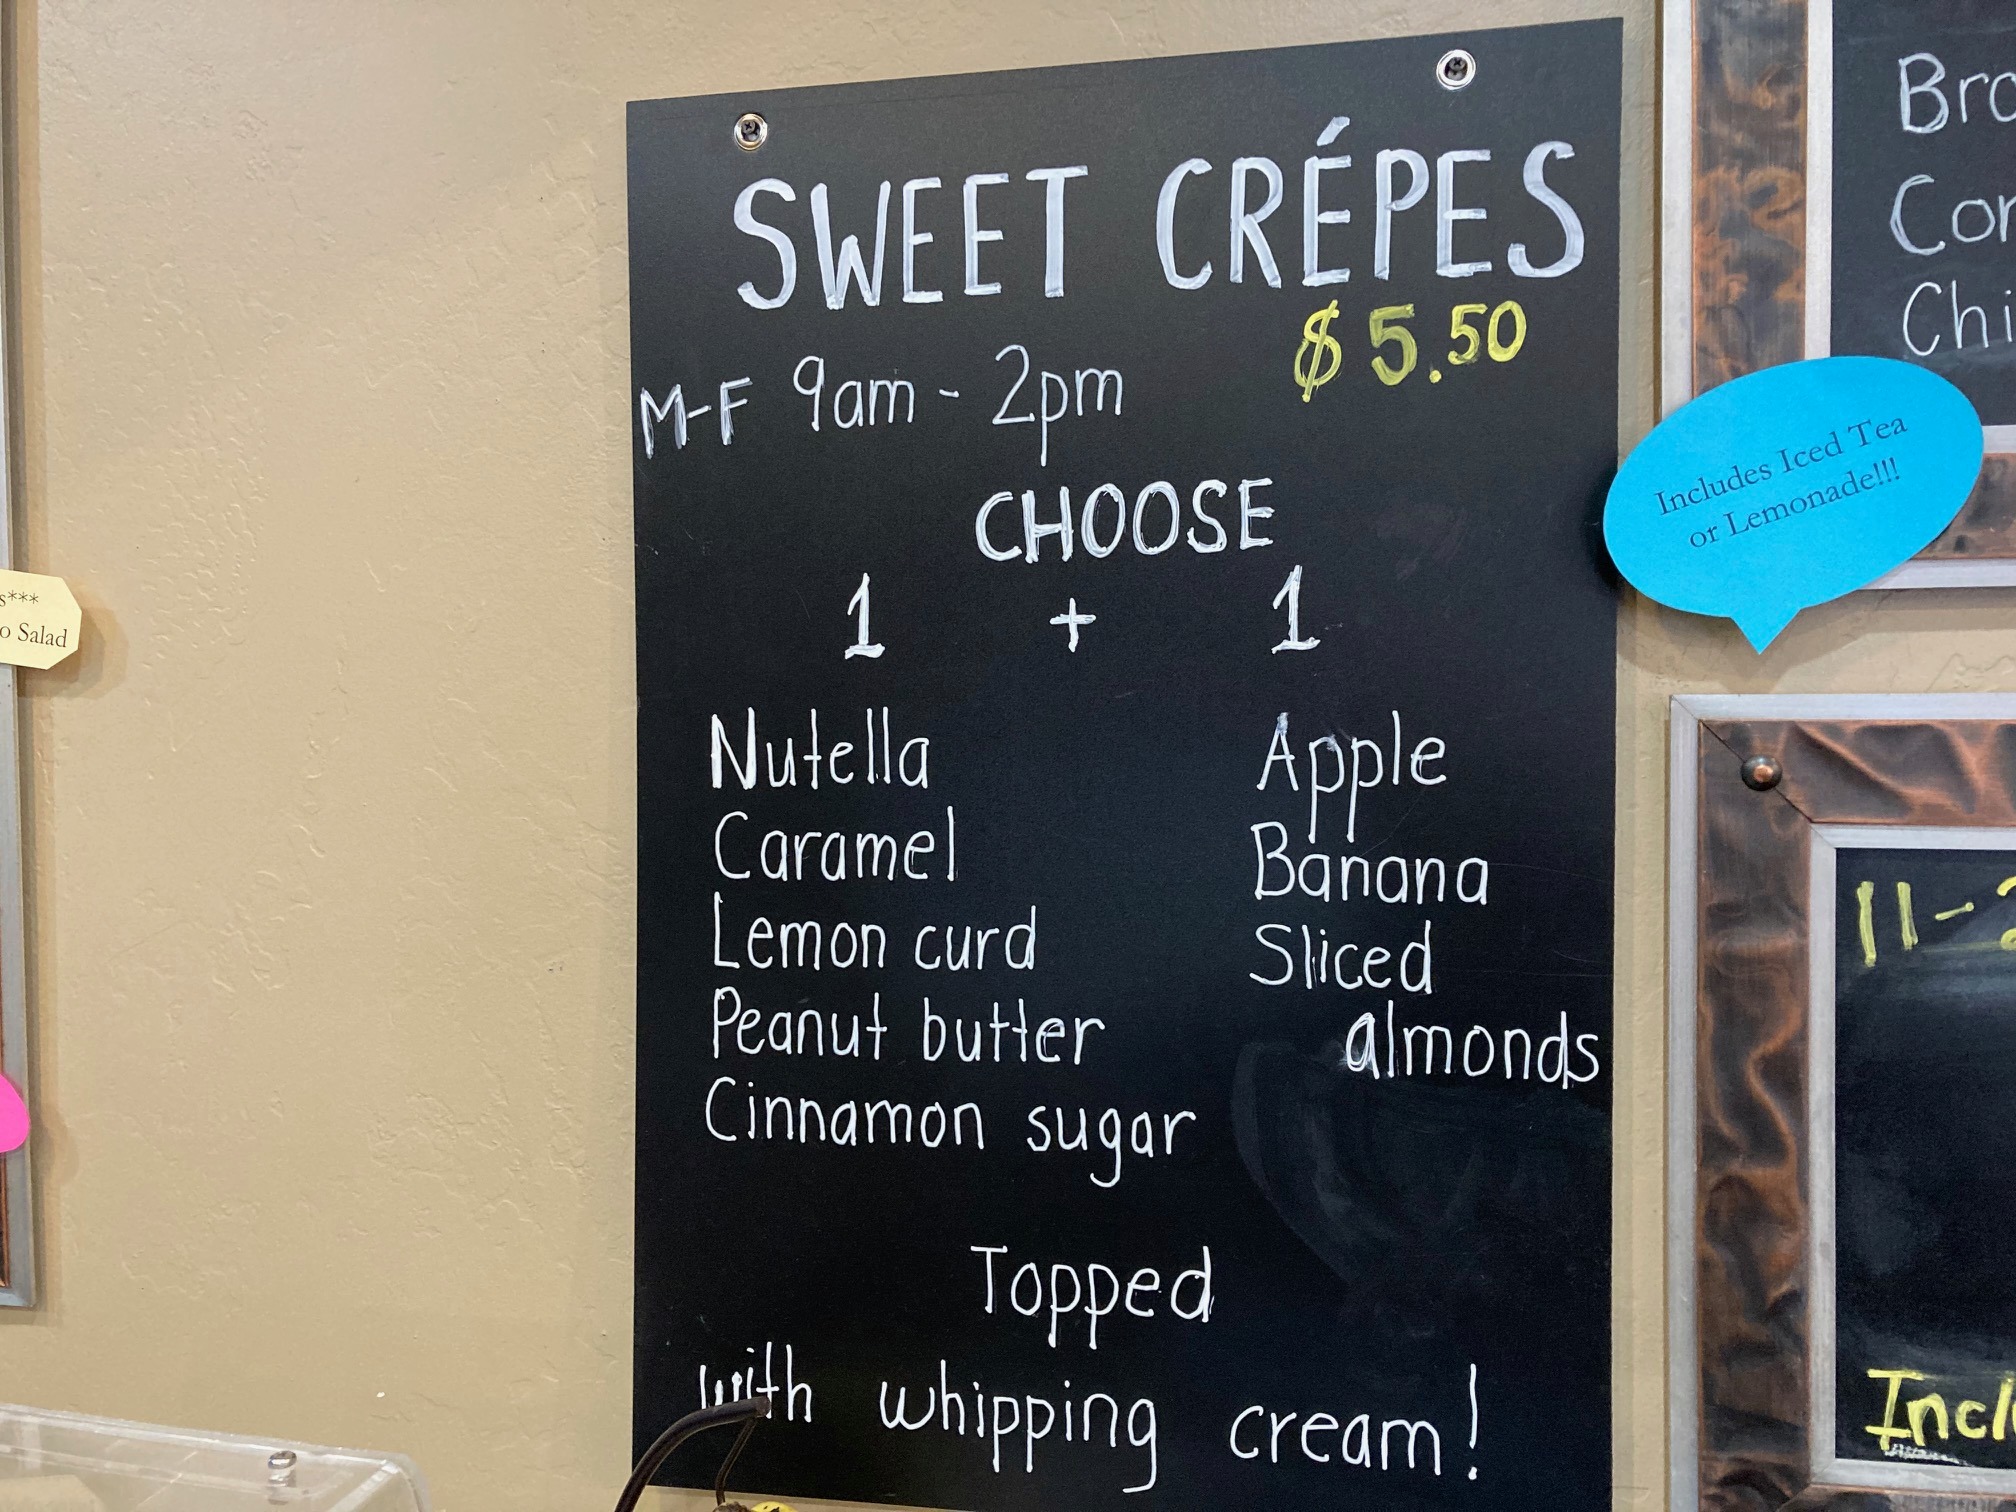 SWEET CRÉPES
$5.50
M-F 9am - 2pm
CHOOSE
1 + 1
Nutella
Caramel
Lemon curd
Peanut butter
Cinnamon sugar
Apple
Banana
Sliced
almonds
Topped
with whipping cream!
Includes Iced Tea
or Lemonade!!!
Salad
11-2